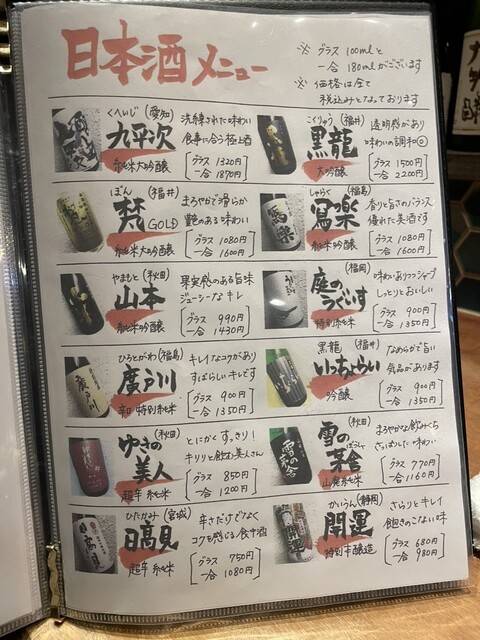 日本酒メニュー
※ グラス 100mlと
一合 180mlがございます
※ 価格は全て
税込みとなっております
くへいじ (愛知)
九平次
純米大吟醸
洗練された味わい
食事に合う極上酒
グラス 1320円
一合 1870円
こくりゅう (福井)
黒龍
大吟醸
透明感があり
味わいの調和◎
グラス 1500円
一合 2200円
ぼん (福井)
梵 GOLD
純米大吟醸
まろやかで滑らか
艶のある味わい
グラス 1080円
一合 1600円
しゃらく (福島)
寫楽
純米吟醸
香りと旨さのバランス
優れた美酒です
グラス 1080円
一合 1600円
やまもと (秋田)
山本
純米吟醸
果実感のある旨味
ジューシーなキレ
グラス 990円
一合 1430円
(福岡)
庭のうぐいす
特別純米
味わいありつつシャープ
しっとりとおいしい
グラス 900円
一合 1350円
ひろとがわ (福島)
廣戸川
特別純米
キレイなコクがあり
すばらしいキレです
グラス 900円
一合 1350円
黒龍 (福井)
いっちょらい
吟醸
なめらかで旨い
気品があります
グラス 900円
一合 1350円
(秋田)
ゆきの美人
超辛 純米
とにかくすっきり!
キリリと飲む美人さん
グラス 850円
一合 1200円
(秋田)
雪の茅舎
山廃純米
まろやかな飲みくち
さっぱりした味わい
グラス 770円
一合 1160円
ひたかみ (宮城)
日高見
超辛 純米
辛さだけでなく
コクも感じる食中酒
グラス 750円
一合 1080円
かいうん (静岡)
開運
特別本醸造
さらりとキレイ
飽きのこない味
グラス 680円
一合 980円